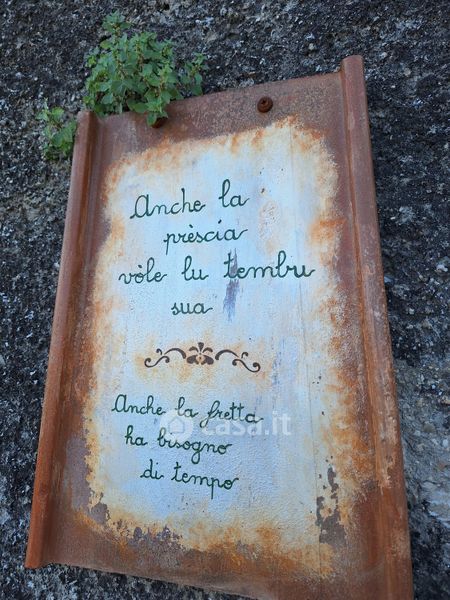 Anche la
prèscia
vòle lu tembu
sua
Anche la fretta
ha bisogno
di tempo
casa.it